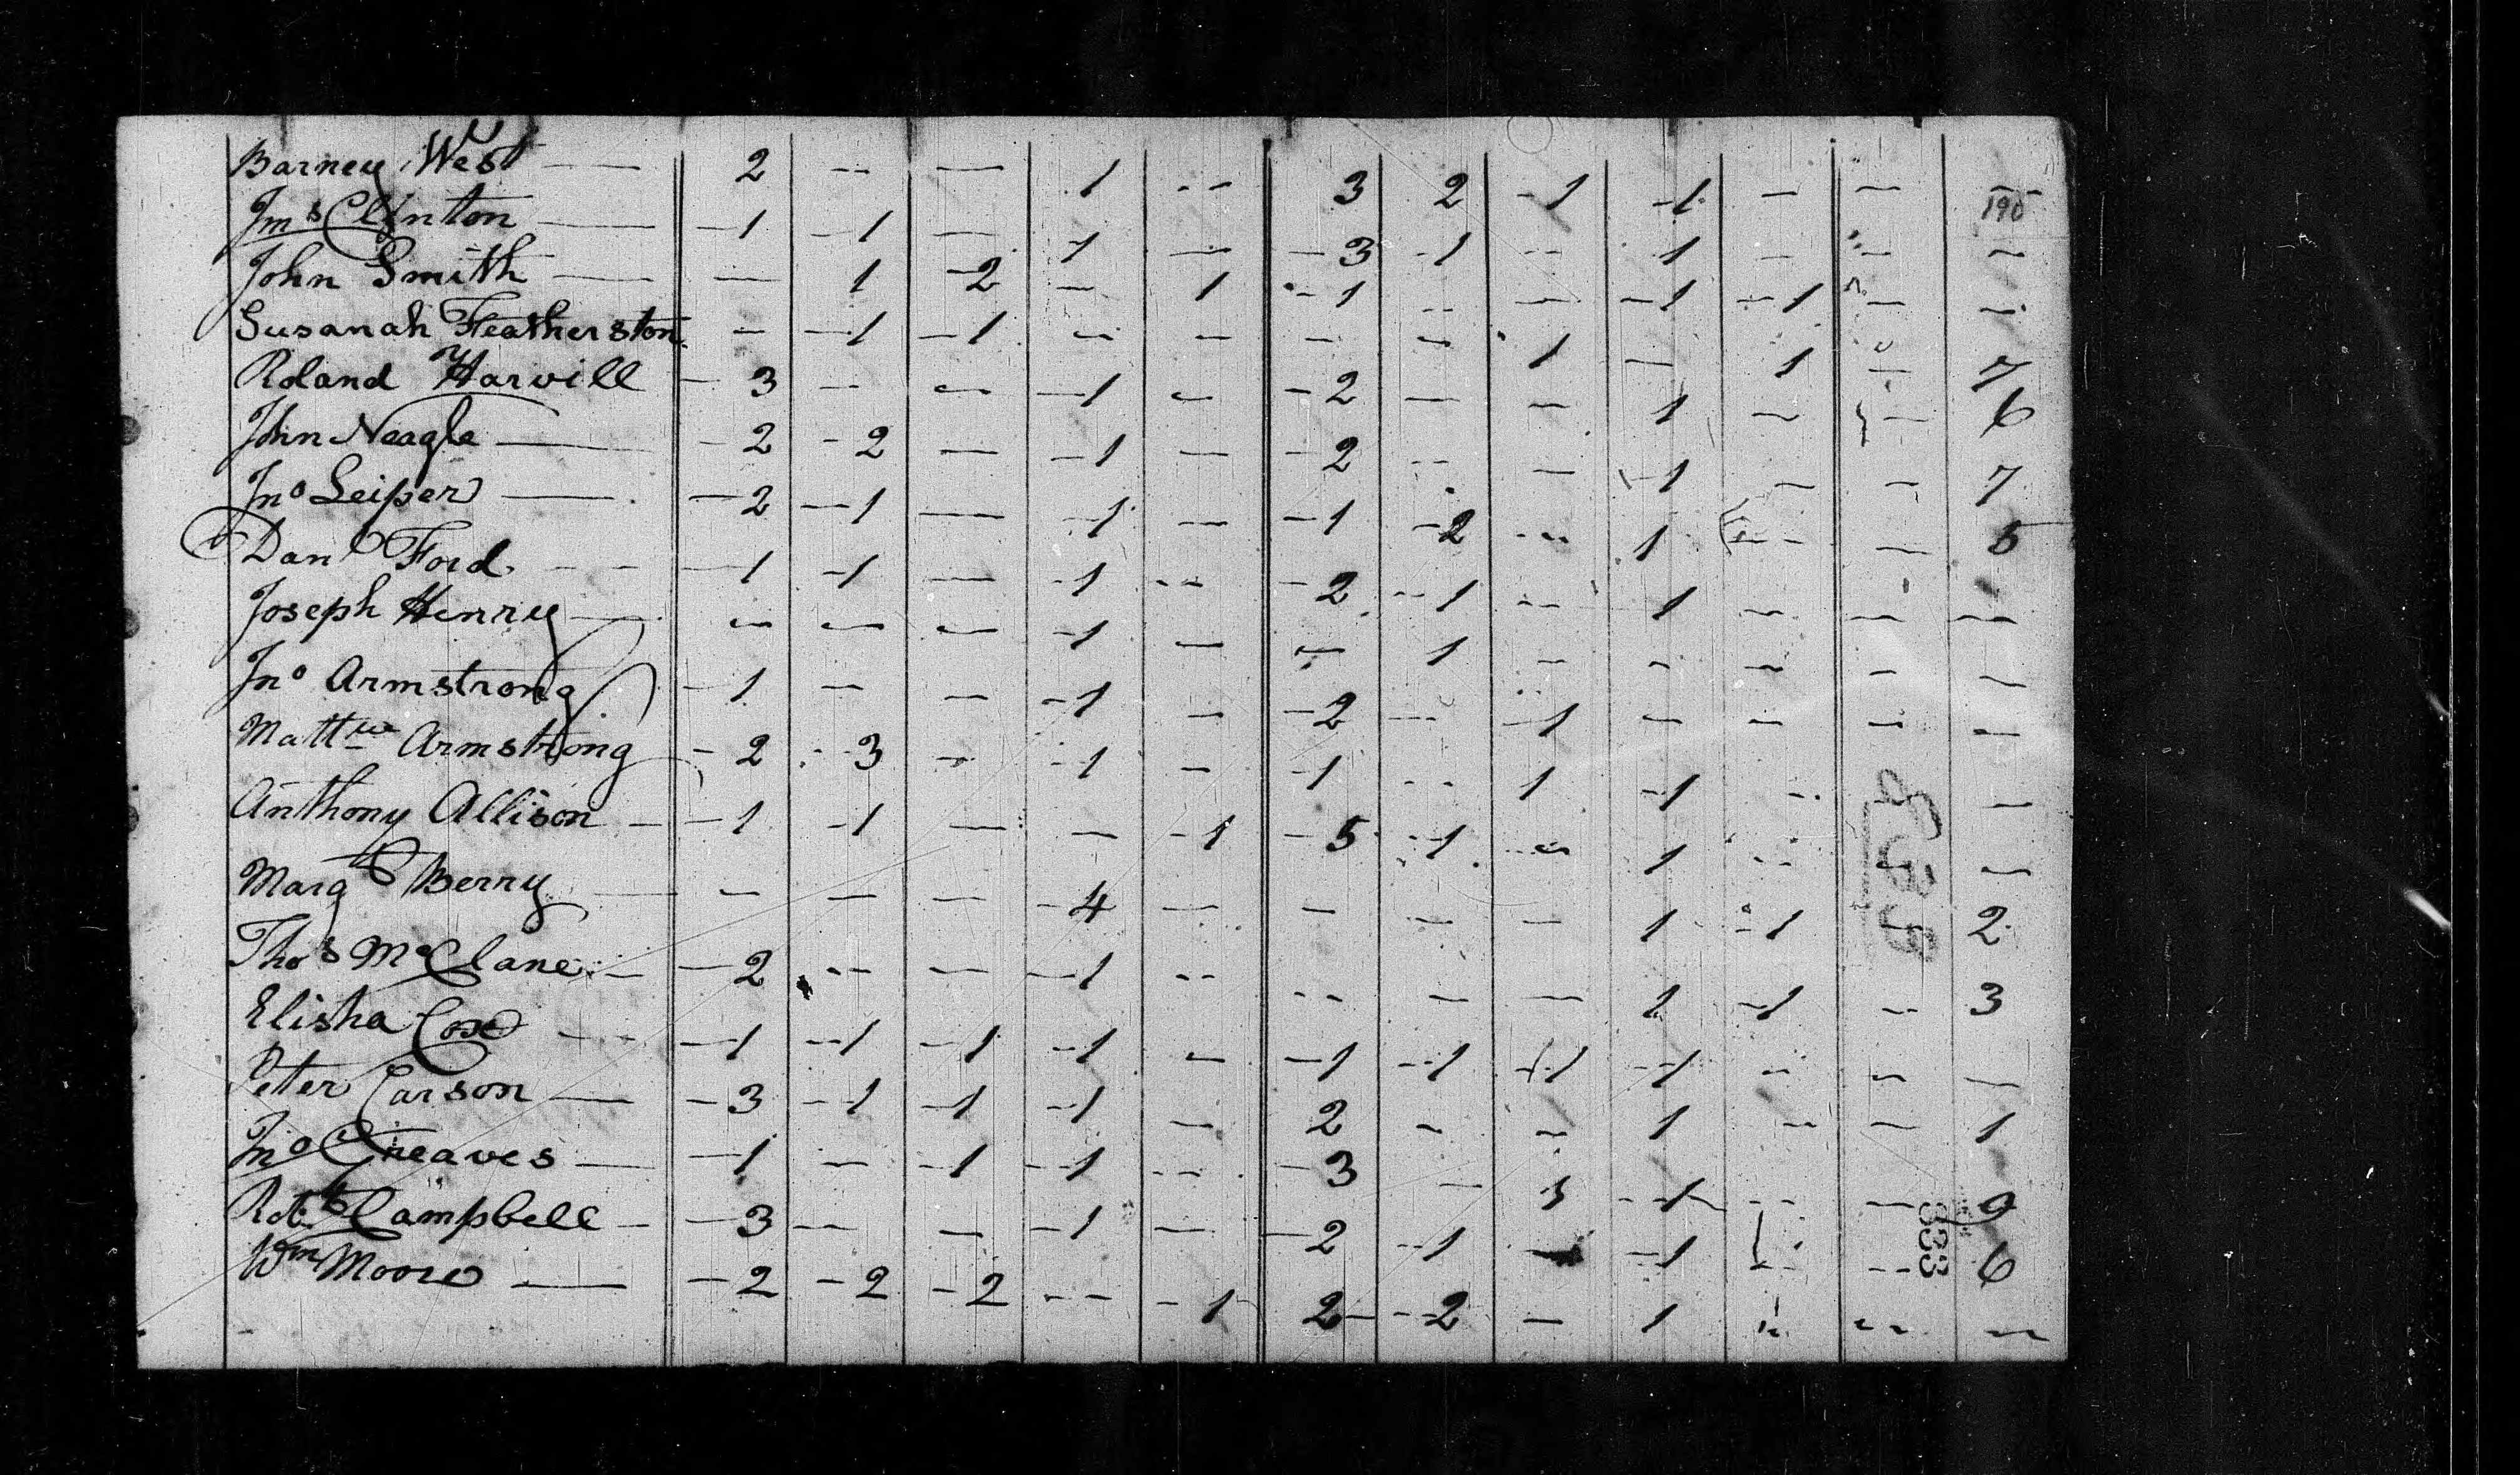 Barney West — 2 -- — 1 -- 3 2 -1 -1 - — --
Jms Clinton — -1 -1 — 1 — -3 -1 -- 1 - -- —
John Smith — — 1 -2 - 1 -1 -- — -1 -1 — -
Susanah Featherston - -1 -1 - - - - 1 - 1 - 7
Roland Harvill -3 -- - -1 - -2 - - 1 - - 6
John Neagle — -2 -2 - -1 - -2 -- - -1 - - 7
Jno Leiper — -2 -1 — -1 - -1 -2 -- 1 -- - 5
Danl Ford -- -1 -1 — -1 -- -2 -1 -- 1 - — —
Joseph Henry — - - - -1 - - 1 - - - - -
Jno Armstrong -1 - - -1 - -2 -- -1 - - - -
Mattw Armstrong -2 -3 - -1 - -1 -- 1 -1 -- -
Anthony Allison — -1 -1 — - -1 -5 -1 -- 1 -- -
Margt Berry — - - - -4 - - - - 1 -1 - 2
Thos McClane — -2 -- - -1 -- -- - - 1 -1 - 3
Elisha Cox -- -1 -1 -1 -1 - -1 -1 -1 -1 - - -
Peter Carson — -3 -1 -1 -1 - 2 - - 1 - - 1
Jno Greaves — -1 - -1 -1 -- -3 - -1 -- - 9
Robt Campbell - -3 -- - -1 - -2 -1 -1 -- -- 6
Wm Moore — -2 -2 -2 -- -1 2- -2 - 1 -- -- -
190
333